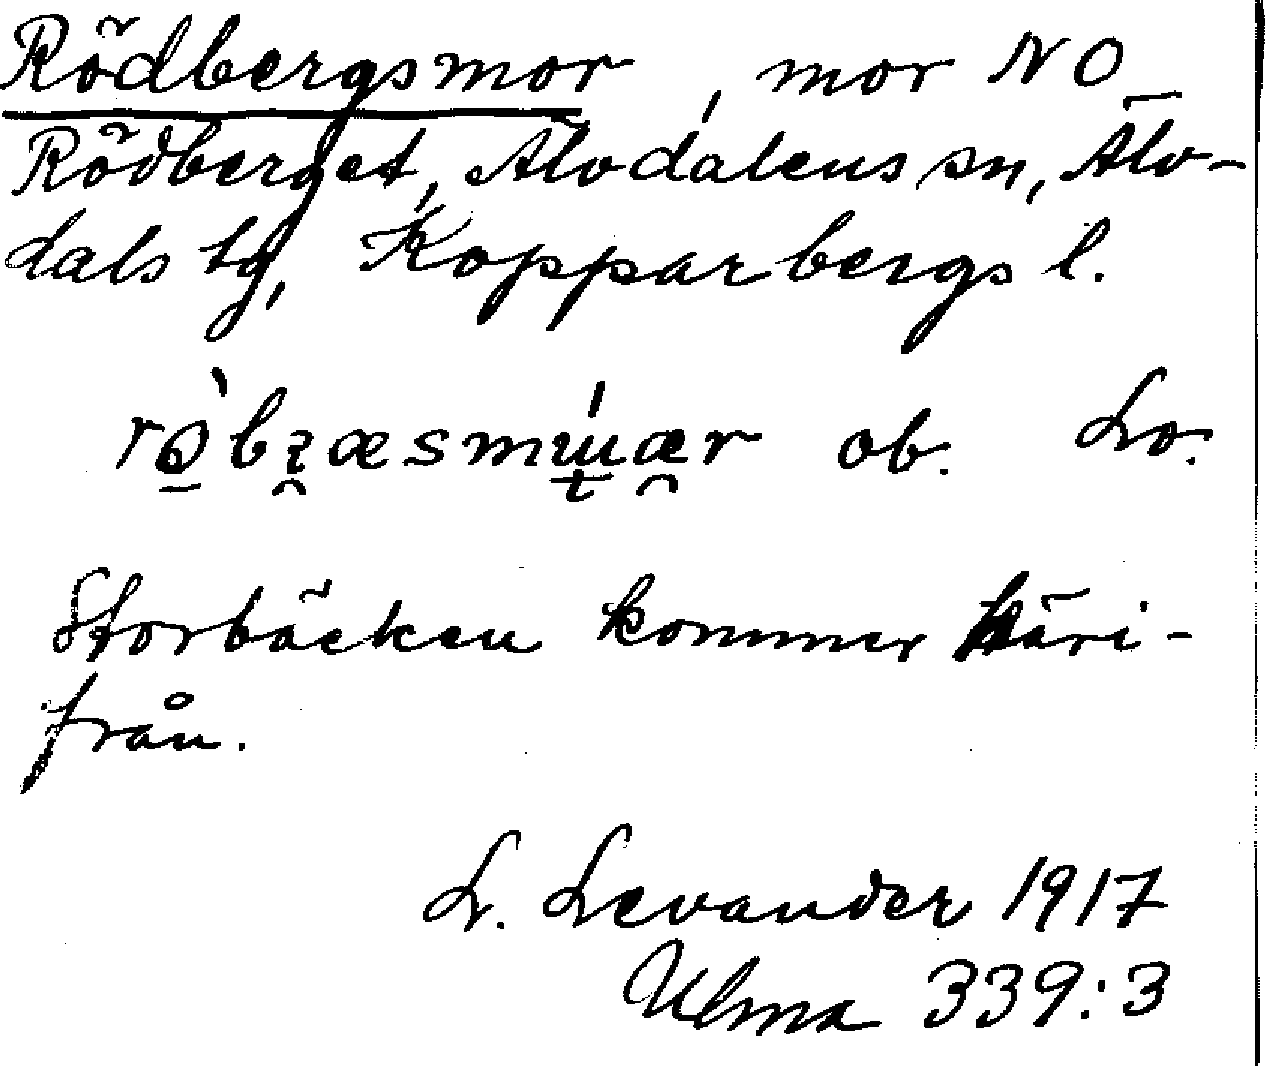 Rödbergsmor, mor NO
Rödberget, Älvdalens sn, Älv-
dals tg, Kopparbergs l.
ob. Lo.
Storbäcken kommer häri-
från.
L. Levander 1917
Ulma 339:3